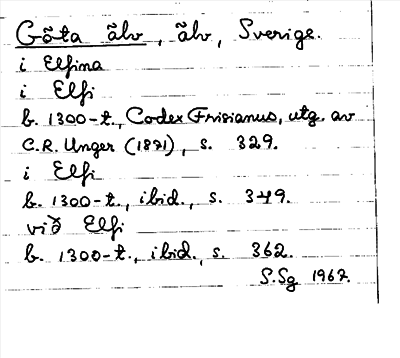 Göta älv, älv, Sverige.
i Elfina
i Elfi
b. 1300-t., Codex Frisianus, utg. av
C.R. Unger (1871), s. 329.
i Elfi
b. 1300-t., ibid., s. 349.
við Elfi
b. 1300-t., ibid., s. 362.
S.Sg 1967.